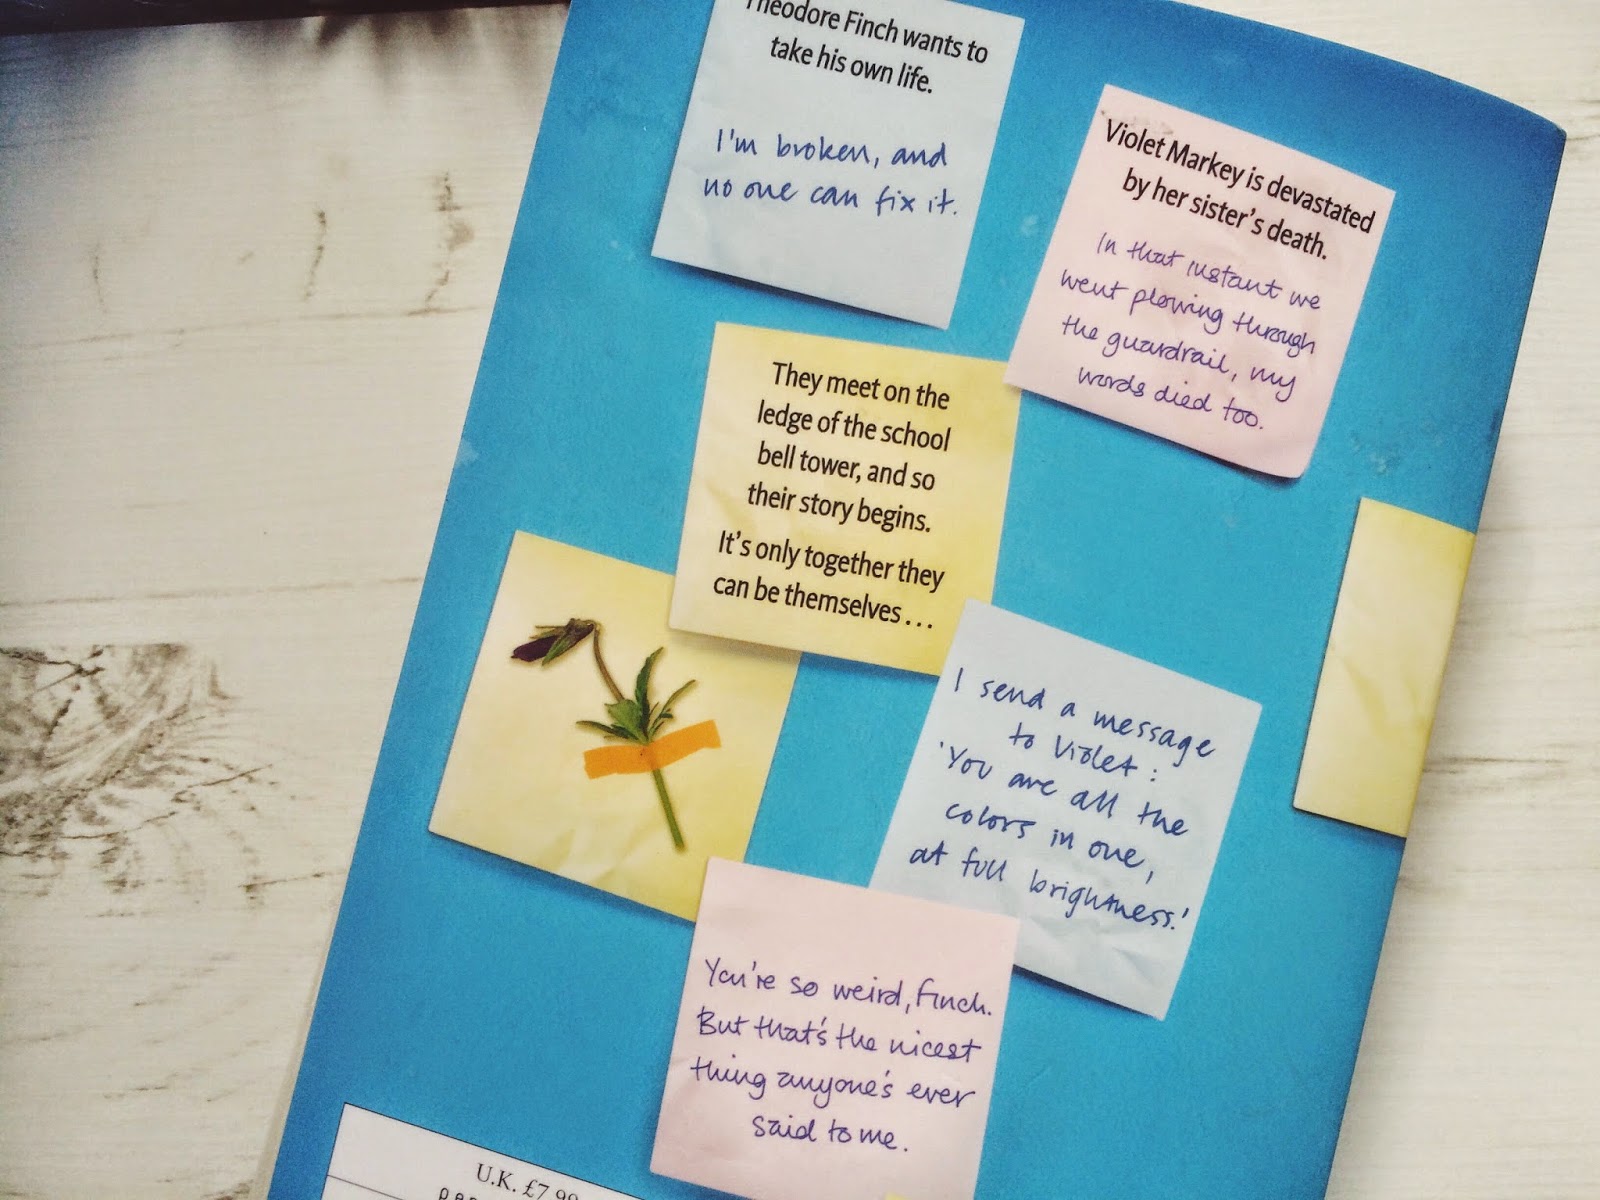 Theodore Finch wants to
take his own life.
I'm broken, and
no one can fix it.
Violet Markey is devastated
by her sister's death.
In that instant we
went plowing through
the guardrail, my
words died too.
They meet on the
ledge of the school
bell tower, and so
their story begins.
It's only together they
can be themselves . . .
I send a message
to Violet:
'You are all the
colors in one,
at full brightness.'
You're so weird, Finch.
But that's the nicest
thing anyone's ever
said to me.
U.K. £7.99